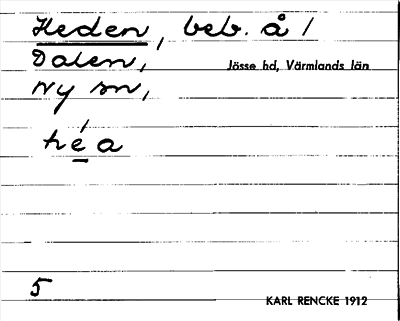 Heden, beb. å /
Dalen,
Jösse hd, Värmlands län
Ny sn,
héa
5
KARL RENCKE 1912